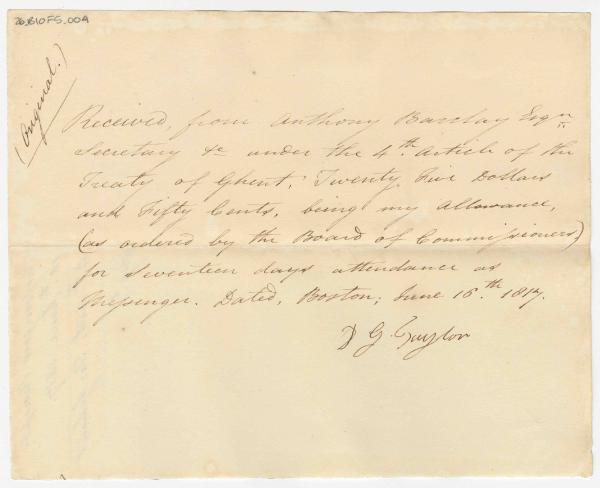 26.B10F5.004
(Original.)
Received, from Anthony Barclay Esqr.
Secretary &c under the 4th. Article of the
Treaty of Ghent, Twenty Five Dollars
and Fifty Cents, being my allowance,
(as ordered by the Board of Commissioners)
for Seventeen days attendance as
Messenger. Dated, Boston; June 16.th 1817.
D G. Taylor